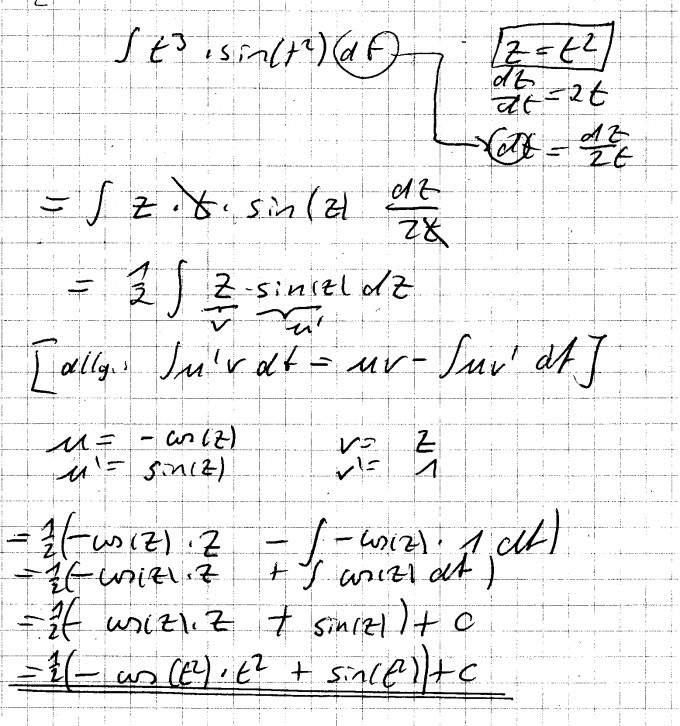 ∫ t³ · sin(t²) dt
z = t²
dz/dt = 2t
dt = dz/2t
= ∫ z · t · sin(z) dz/2t
= 1/2 ∫ z · sin(z) dz
v u'
[allg.: ∫u'v dt = uv - ∫uv' dt]
u = -cos(z) v = z
u' = sin(z) v' = 1
= 1/2(-cos(z) · z - ∫ -cos(z) · 1 dt)
= 1/2(-cos(z) · z + ∫ cos(z) dt)
= 1/2(- cos(z) · z + sin(z)) + c
= 1/2(- cos(t²) · t² + sin(t²)) + c